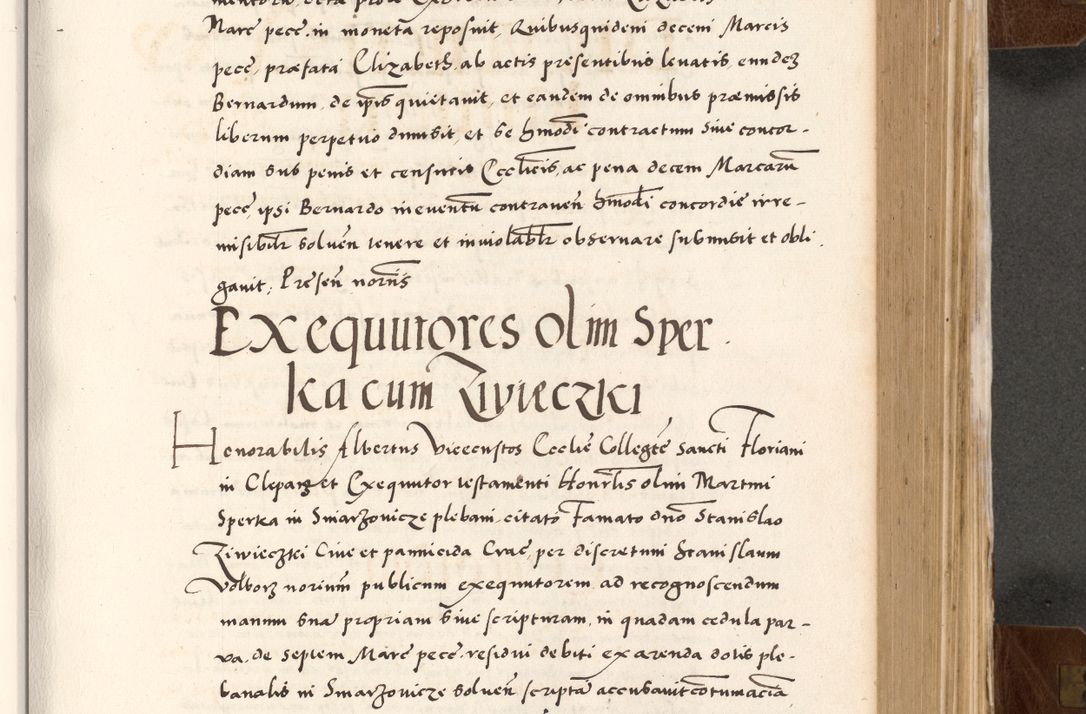 Marc̄ pecc̄. in moneta reposuit, Quibusquidem decem Marcis
pecc̄, præfata Elizabeth, ab actis presentibus levatis, eundeʒ
Bernardum, de ip̄is quietavit, et eandem de omnibus præmissis
liberum perpetuo dimisit, et se hmōdi contractum sive concor-
diam sub penis et censuris Eccl̄icis, ac pena decem Marcarū
pecc̄, ipsi Bernardo in eventū contraven̄ hmōdi concordiæ irre-
misibilr̄ solven̄ tenere et inviolabl̄r observare submisit et obli
gavit, Presen̄ nor̄iis
Exequutores olim Sper
ka cum Ziwieczki
Honorabilis Albertus Vicecustos Ecclīe Collegtē Sancti Floriani
in Cleparz et Exequutor testamenti Honrl̄is olim Martini
Sperka in Smarzovicze plebani, citato Famato dnō Stanislao
Ziwieczki Cive et pannicida Crac̄, per discretum Stanislaum
Volborz noriūm publicum exequutorem, ad recognoscendum
manum suā propriam sive scripturam, in quadam cedula par-
va, de septem Marc̄ pecc̄. residui debiti ex arenda dotis ple-
banalis in Smarzovicze solven̄ scriptā accusavit cōtumaciā